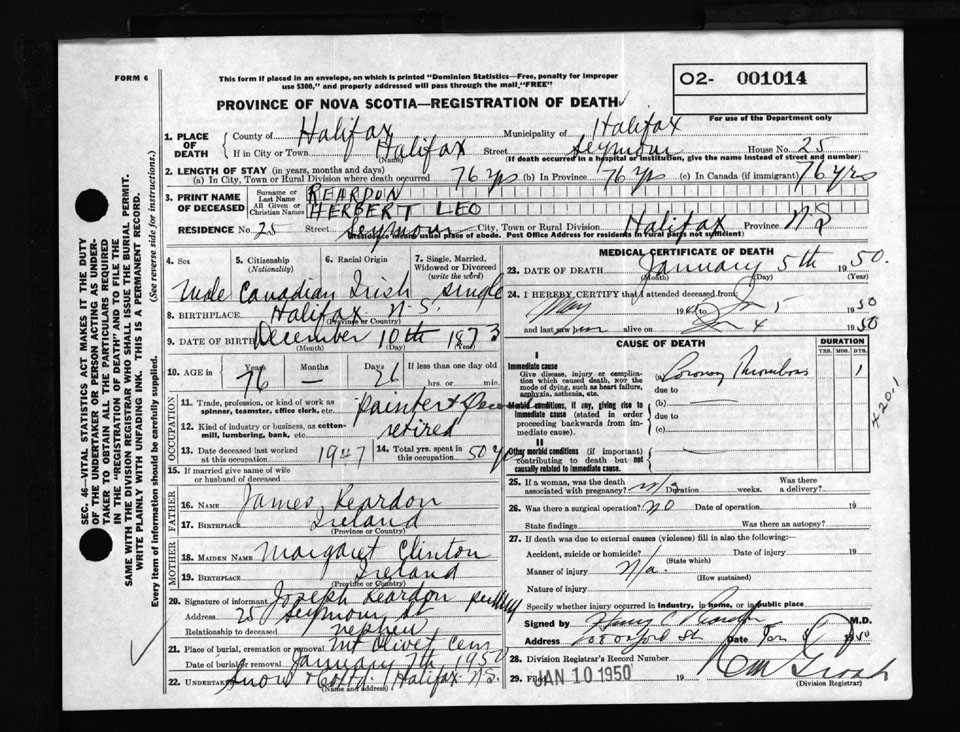 FORM 6
This form if placed in an envelope, on which is printed "Dominion Statistics—Free, penalty for improper
use $300," and properly addressed will pass through the mail "FREE"
O2- 001014
For use of the Department only
PROVINCE OF NOVA SCOTIA—REGISTRATION OF DEATH
1. PLACE OF DEATH County of Halifax Municipality of Halifax
If in City or Town Halifax (Name) Street Seymour House No. 25
(If death occurred in a hospital or institution, give the name instead of street and number)
2. LENGTH OF STAY (in years, months and days)
(a) In City, Town or Rural Division where death occurred 76 yrs (b) In Province 76 yrs (c) In Canada (if immigrant) 76 yrs
3. PRINT NAME OF DECEASED Surname or Last Name REARDON
All Given or Christian Names HERBERT LEO
RESIDENCE No. 25 Street Seymour City, Town or Rural Division Halifax Province N S
Residence means usual place of abode. Post Office Address for residents in rural parts not sufficient)
4. Sex
5. Citizenship (Nationality)
6. Racial Origin
7. Single, Married, Widowed or Divorced (write the word)
Male Canadian Irish single
8. BIRTHPLACE Halifax N.S.
(Province or Country)
9. DATE OF BIRTH December 10th 1873
(Month) (Day) (Year)
10. AGE in Years 76 Months — Days 26 If less than one day old
hrs. or min.
OCCUPATION
11. Trade, profession, or kind of work as spinner, teamster, office clerk, etc. painter
12. Kind of industry or business, as cotton-mill, lumbering, bank, etc. retired
13. Date deceased last worked at this occupation 1947
14. Total yrs. spent in this occupation 50 yrs
15. If married give name of wife or husband of deceased
FATHER
16. NAME James Reardon
17. BIRTHPLACE Ireland
(Province or Country)
MOTHER
18. MAIDEN NAME Margaret Clinton
19. BIRTHPLACE Ireland
(Province or Country)
20. Signature of informant Joseph Reardon
Address 25 Seymour st
Relationship to deceased nephew
21. Place of burial, cremation or removal Mt Olivet Cem
Date of burial or removal January 7th 1950
22. Undertaker Snow & Co Ltd. Halifax N.S.
(Name and address)
MEDICAL CERTIFICATE OF DEATH
23. DATE OF DEATH January 5th 1950.
(Month) (Day) (Year)
24. I HEREBY CERTIFY that I attended deceased from
May 19 to Jan 5 1950
and last saw him alive on Jan 4 1950
CAUSE OF DEATH
DURATION
YRS. MOS. DYS.
I
Immediate cause
Give disease, injury or complication which caused death, NOT the mode of dying, such as heart failure, asphyxia, asthenia, etc.
(a) Coronary Thrombosis 1
due to
Morbid conditions, if any, giving rise to immediate cause (stated in order proceeding backwards from immediate cause).
(b)
due to
(c)
II
Other morbid conditions (if important) contributing to death but not causally related to immediate cause.
4201
25. If a woman, was the death associated with pregnancy? n/a Duration weeks. Was there a delivery?
26. Was there a surgical operation? no Date of operation 19
State findings Was there an autopsy?
27. If death was due to external causes (violence) fill in also the following:—
Accident, suicide or homicide? Date of injury 19
(State which)
Manner of injury N/a.
(How sustained)
Nature of injury
Specify whether injury occurred in industry, in home, or in public place
Signed by M.D.
Address Oxford St Date Jan 1950
28. Division Registrar's Record Number
29. Filed JAN 10 1950 19
(Division Registrar)
SEC. 46—VITAL STATISTICS ACT MAKES IT THE DUTY
OF THE UNDERTAKER OR PERSON ACTING AS UNDER-
TAKER TO OBTAIN ALL THE PARTICULARS REQUIRED
IN THE "REGISTRATION OF DEATH" AND TO FILE THE
SAME WITH THE DIVISION REGISTRAR WHO SHALL ISSUE THE BURIAL PERMIT.
WRITE PLAINLY WITH UNFADING INK. THIS IS A PERMANENT RECORD.
Every item of information should be carefully supplied. (See reverse side for instructions.)